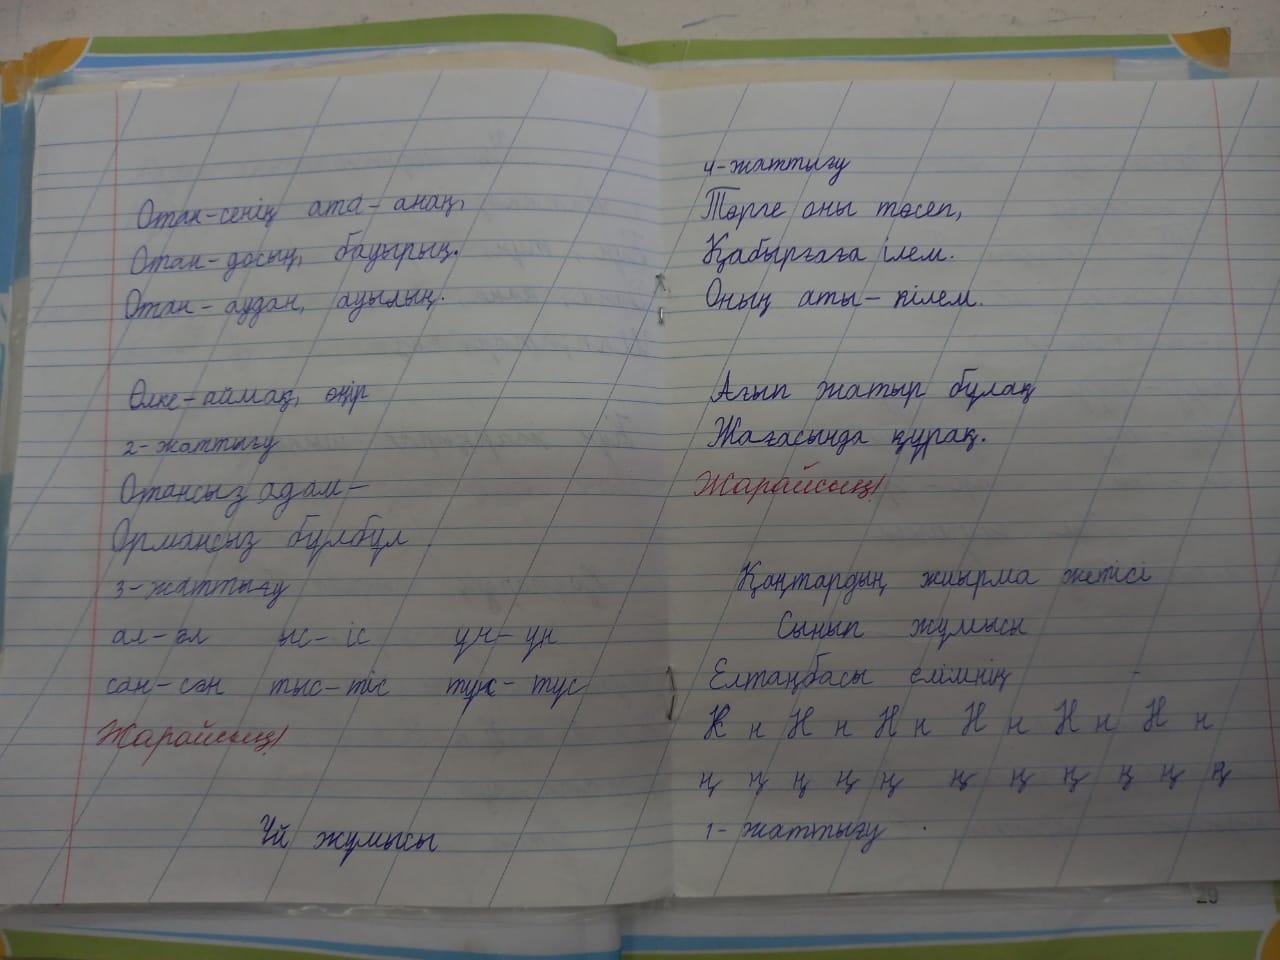 Отан-сенің ата-анаң,
Отан-досың, бауырың.
Отан-аудан, ауылың.
Өлке-аймақ, өңір
2-жаттығу
Отансыз адам-
Ормансыз бұлбұл
3-жаттығу
ал-әл ыс-іс ұн-үн
сан-сән тыс-тіс тұс-түс
Жарайсың!
Үй жұмысы
4-жаттығу
Төрге оны төсеп,
Қабырғаға ілем.
Оның аты-кілем.
Ағып жатыр бұлақ
Жағасында құрақ.
Жарайсың!
Қаңтардың жиырма жетісі
Сынып жұмысы
Елтаңбасы елімнің
Н н Н н Н н Н н Н н Н н
ң ң ң ң ң ң ң ң ң ң ң
1-жаттығу
29